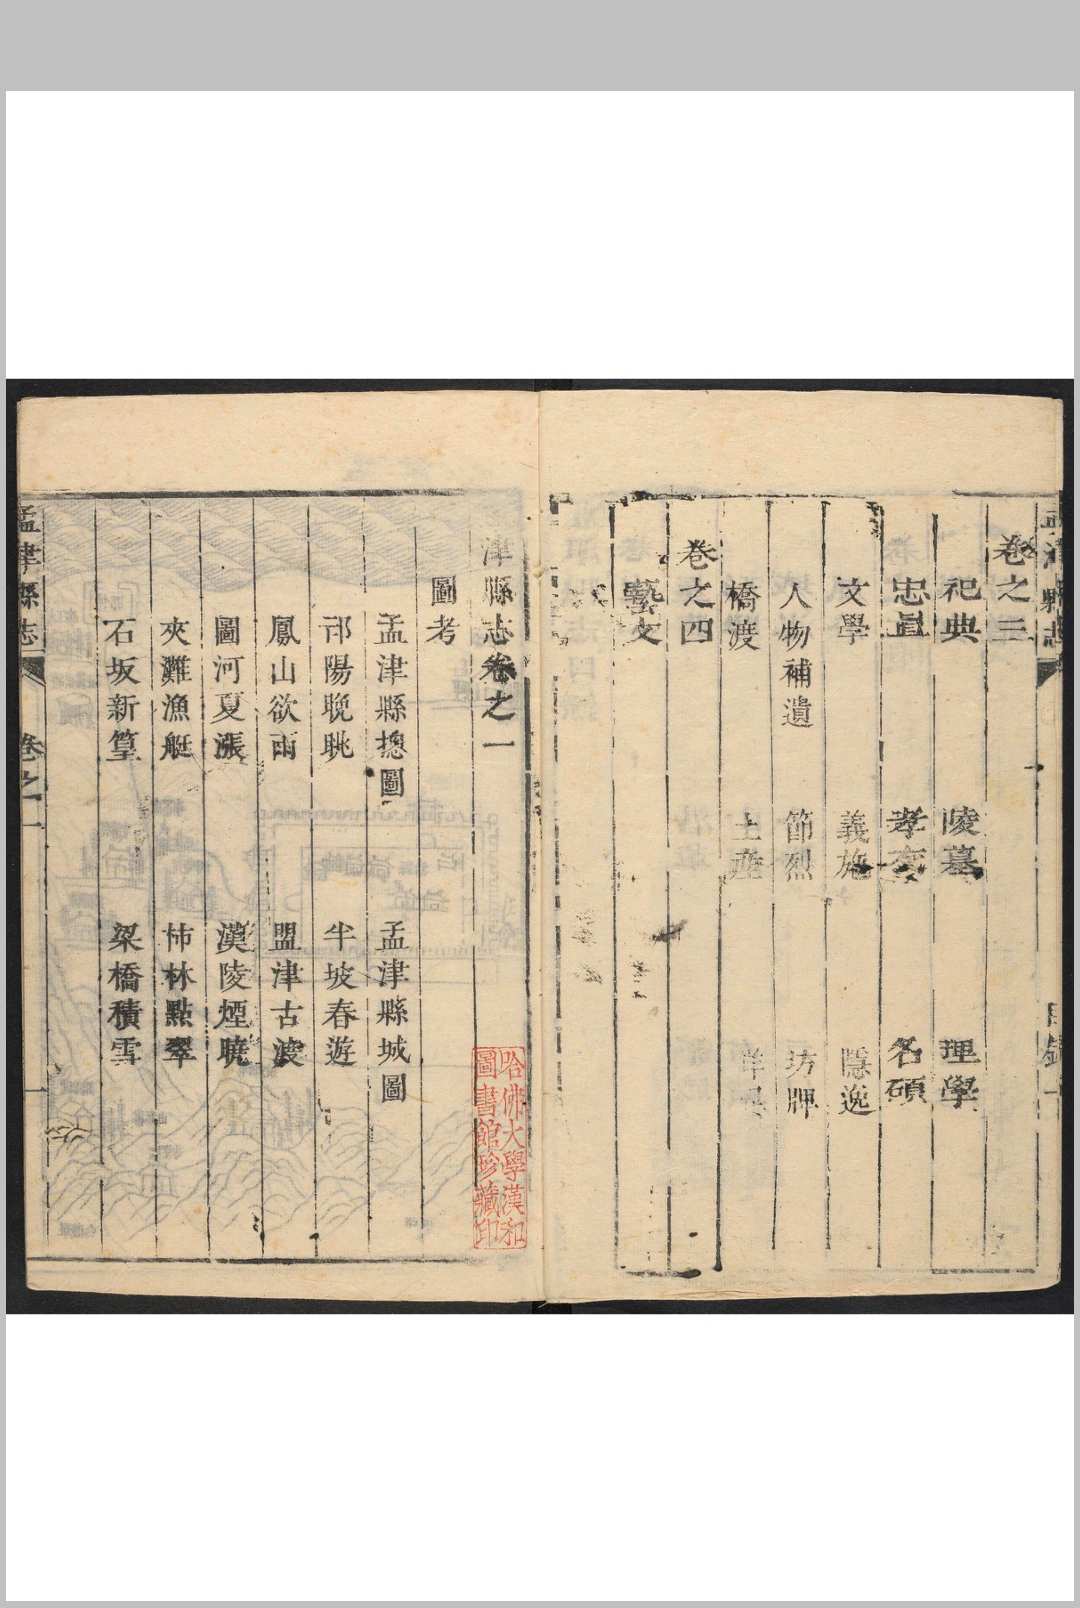 孟津縣志
目錄 一
卷之三
祀典 陵墓 理學
忠直 孝友 名碩
文學 義施 隱逸
人物補遺 節烈 坊牌
橋渡 土產 祥異
卷之四
藝文
津縣志卷之一
圖考
孟津縣摠圖 孟津縣城圖
邙陽晚眺 半坡春遊
鳳山欲雨 盟津古渡
圖河夏漲 漢陵煙曉
夾灘漁艇 柿林點翠
石坂新篁 梁橋積雪
孟津縣志
卷之一
一
哈佛大學漢和
圖書館珍藏印